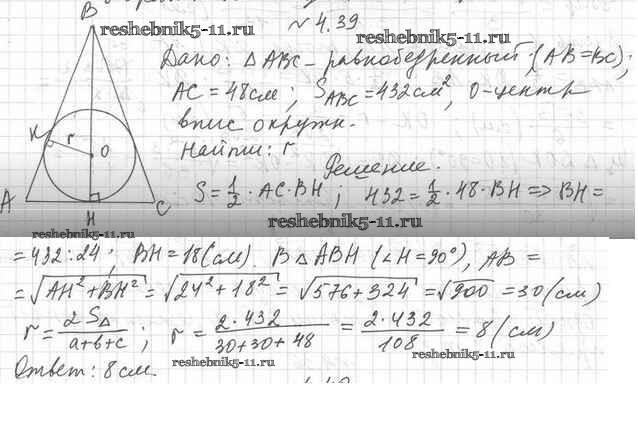 B
reshebnik5-11.ru
№ 4.39
reshebnik5-11.ru
Дано: △ABC – равнобедренный (AB=BC);
AC = 48см; S_ABC = 432см², O-центр
впис окружн.
Найти: r
Решение.
K
r
O
A
H
C
S = 1/2 · AC·BH ; 432 = 1/2 · 48 · BH => BH =
reshebnik5-11.ru
reshebnik5-11.ru
= 432:24 ; BH = 18(см). В △ABH (∠H=90°), AB =
= √AH²+BH² = √24²+18² = √576+324 = √900 = 30(см)
r = 2S△/a+b+c ; r = 2·432/30+30+48 = 2·432/108 = 8(см)
reshebnik5-11.ru
reshebnik5-11.ru
Ответ: 8см.